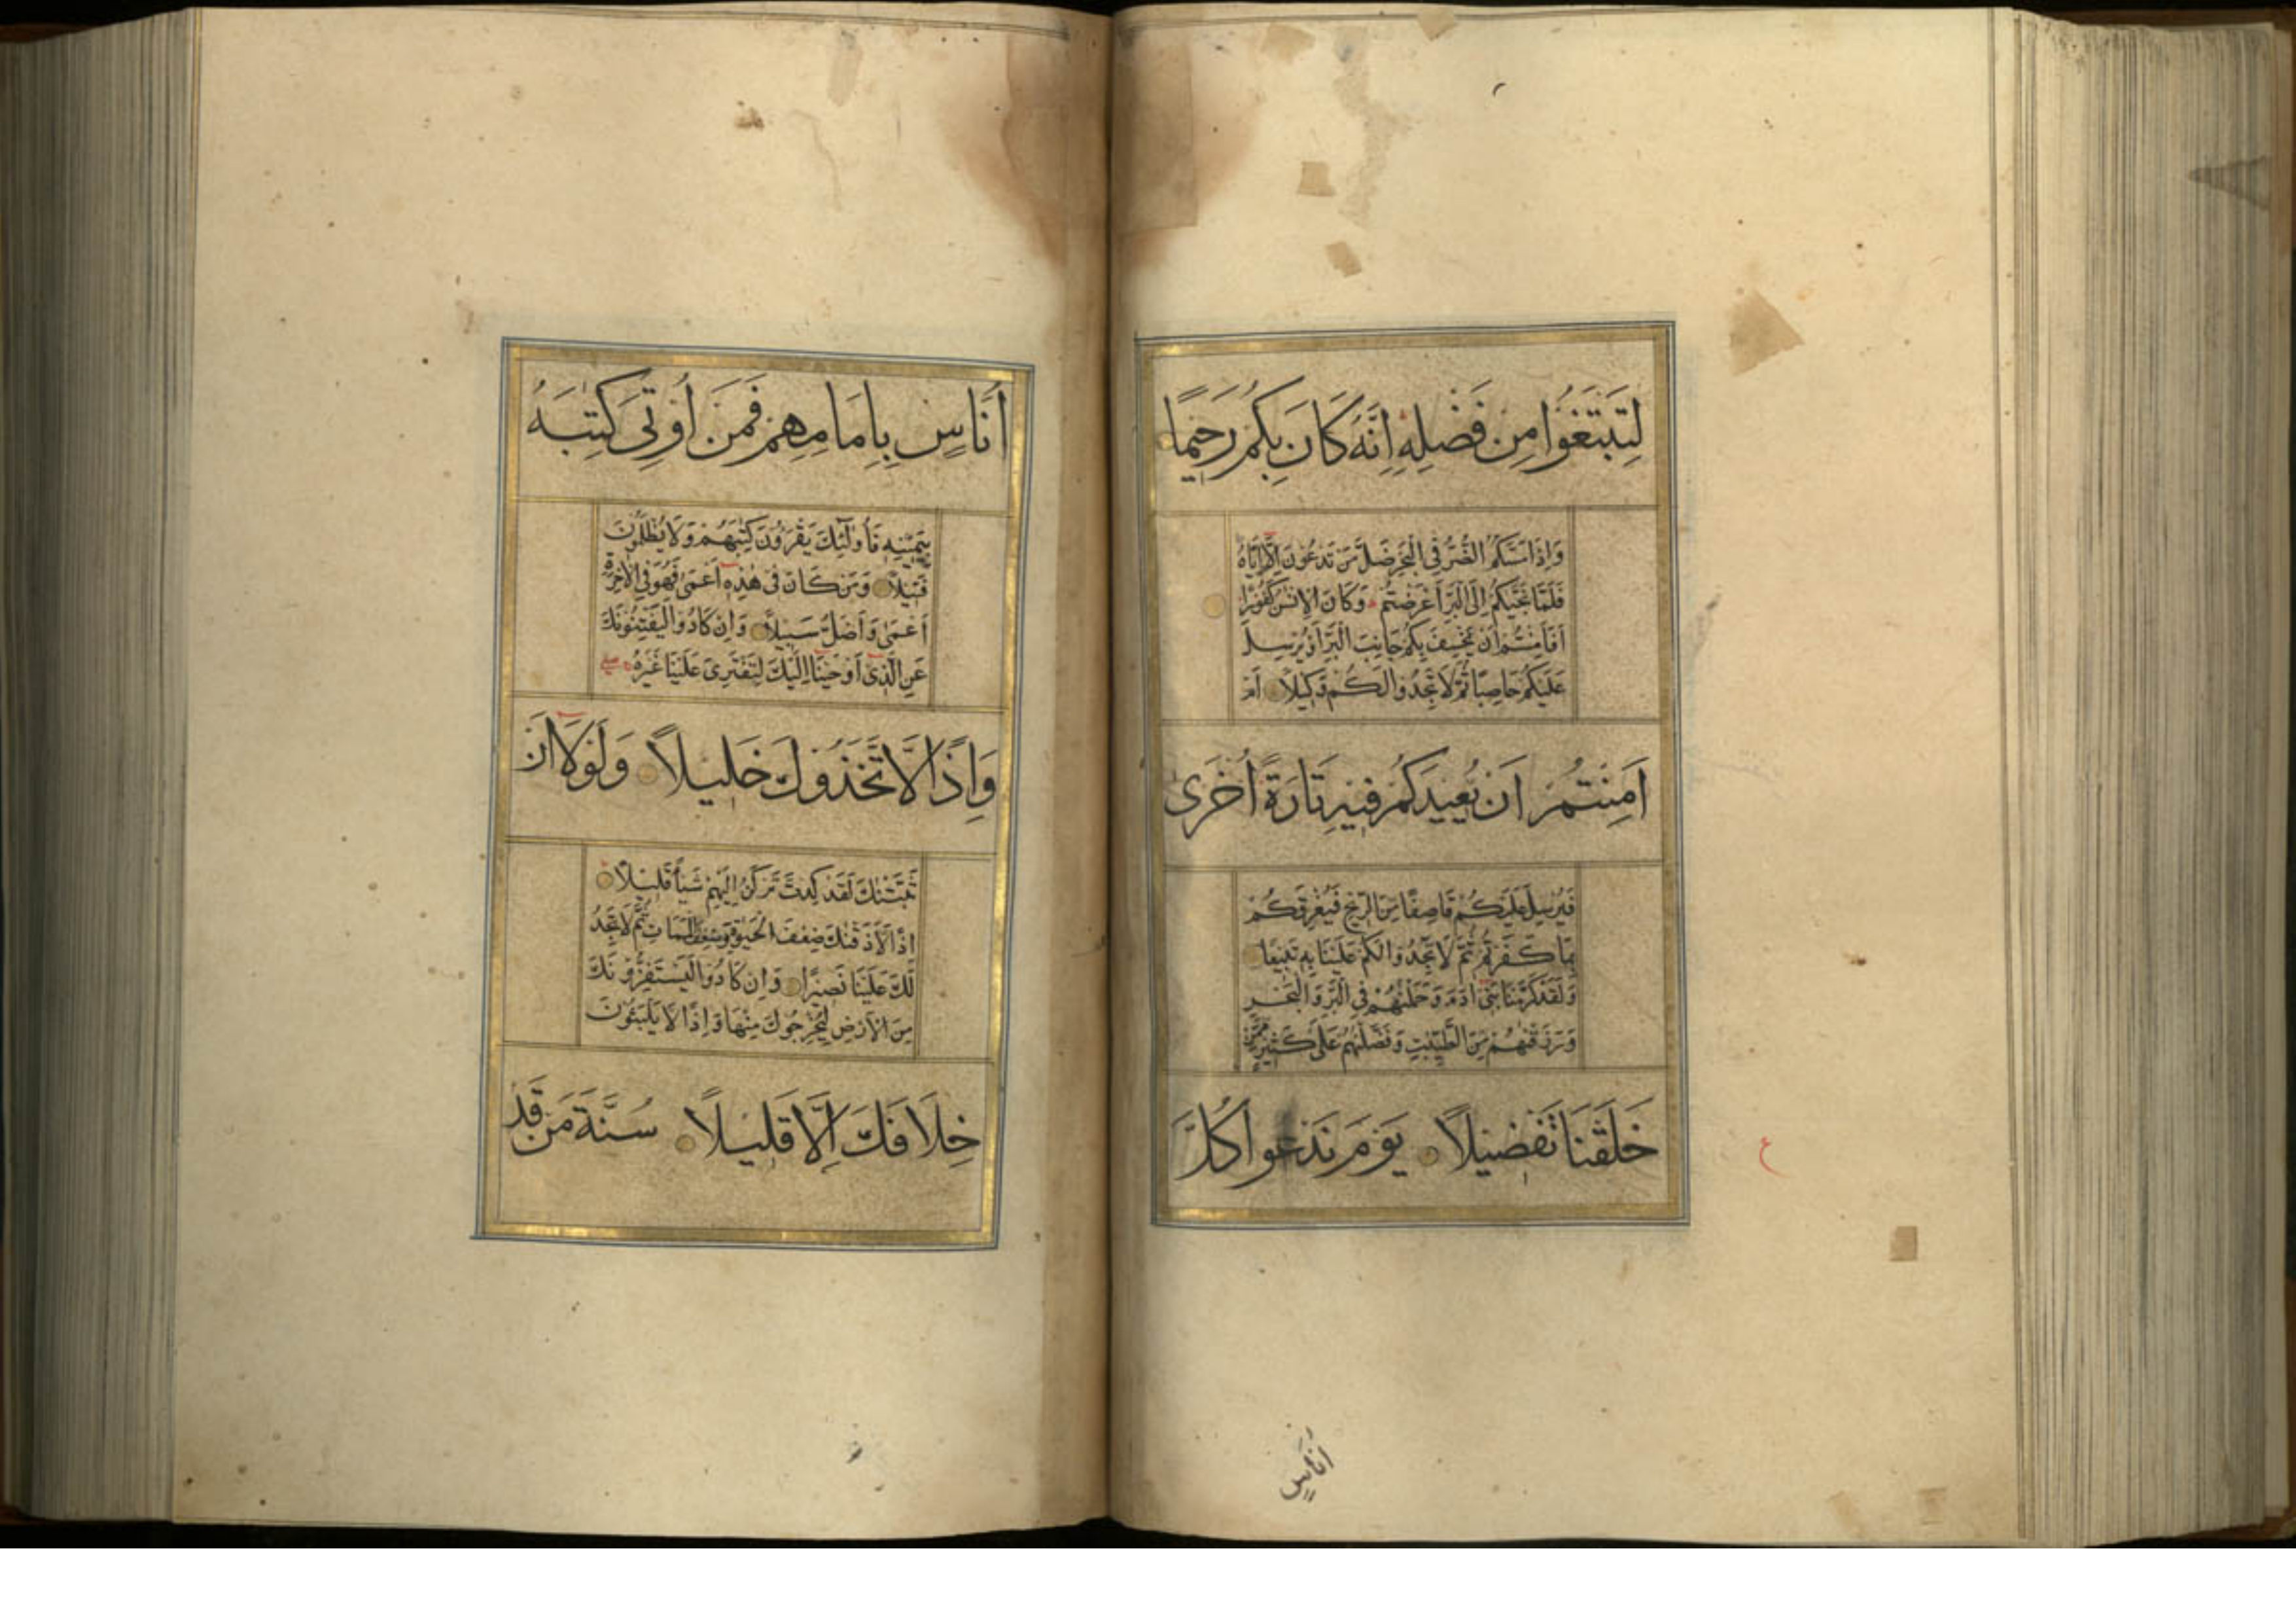 لِتَبْتَغُوا مِن فَضْلِهِ إِنَّهُ كَانَ بِكُمْ رَحِيمًا
وَإِذَا مَسَّكُمُ الضُّرُّ فِي الْبَحْرِ ضَلَّ مَن تَدْعُونَ إِلَّا إِيَّاهُ
فَلَمَّا نَجّٰىكُمْ إِلَى الْبَرِّ أَعْرَضْتُمْ وَكَانَ الْإِنْسٰنُ كَفُورًا
أَفَأَمِنْتُمْ أَنْ يَخْسِفَ بِكُمْ جَانِبَ الْبَرِّ أَوْ يُرْسِلَ
عَلَيْكُمْ حَاصِبًا ثُمَّ لَا تَجِدُوا لَكُمْ وَكِيلًا أَمْ
أَمِنْتُمْ أَنْ يُعِيدَكُمْ فِيهِ تَارَةً أُخْرَى
فَيُرْسِلَ عَلَيْكُمْ قَاصِفًا مِنَ الرِّيحِ فَيُغْرِقَكُمْ
بِمَا كَفَرْتُمْ ثُمَّ لَا تَجِدُوا لَكُمْ عَلَيْنَا بِهِ تَبِيعًا
وَلَقَدْ كَرَّمْنَا بَنِي آدَمَ وَحَمَلْنٰهُمْ فِي الْبَرِّ وَالْبَحْرِ
وَرَزَقْنٰهُمْ مِنَ الطَّيِّبٰتِ وَفَضَّلْنٰهُمْ عَلَى كَثِيرٍ مِمَّنْ
خَلَقْنَا تَفْضِيلًا يَوْمَ نَدْعُوا كُلَّ
ع
أُنَاسٍ
أُنَاسٍ بِإِمَامِهِمْ فَمَنْ أُوتِيَ كِتٰبَهُ
بِيَمِينِهِ فَأُولٰئِكَ يَقْرَؤُنَ كِتٰبَهُمْ وَلَا يُظْلَمُونَ
فَتِيلًا وَمَنْ كَانَ فِي هٰذِهِ أَعْمَى فَهُوَ فِي الْآخِرَةِ
أَعْمَى وَأَضَلُّ سَبِيلًا وَإِنْ كَادُوا لَيَفْتِنُونَكَ
عَنِ الَّذِي أَوْحَيْنَا إِلَيْكَ لِتَفْتَرِيَ عَلَيْنَا غَيْرَهُ
وَإِذًا لَاتَّخَذُوكَ خَلِيلًا وَلَوْلَا أَنْ
ثَبَّتْنٰكَ لَقَدْ كِدْتَ تَرْكَنُ إِلَيْهِمْ شَيْأً قَلِيلًا
إِذًا لَأَذَقْنٰكَ ضِعْفَ الْحَيٰوةِ وَضِعْفَ الْمَمَاتِ ثُمَّ لَا تَجِدُ
لَكَ عَلَيْنَا نَصِيرًا وَإِنْ كَادُوا لَيَسْتَفِزُّونَكَ
مِنَ الْأَرْضِ لِيُخْرِجُوكَ مِنْهَا وَإِذًا لَا يَلْبَثُونَ
خِلَافَكَ إِلَّا قَلِيلًا سُنَّةَ مَنْ قَدْ